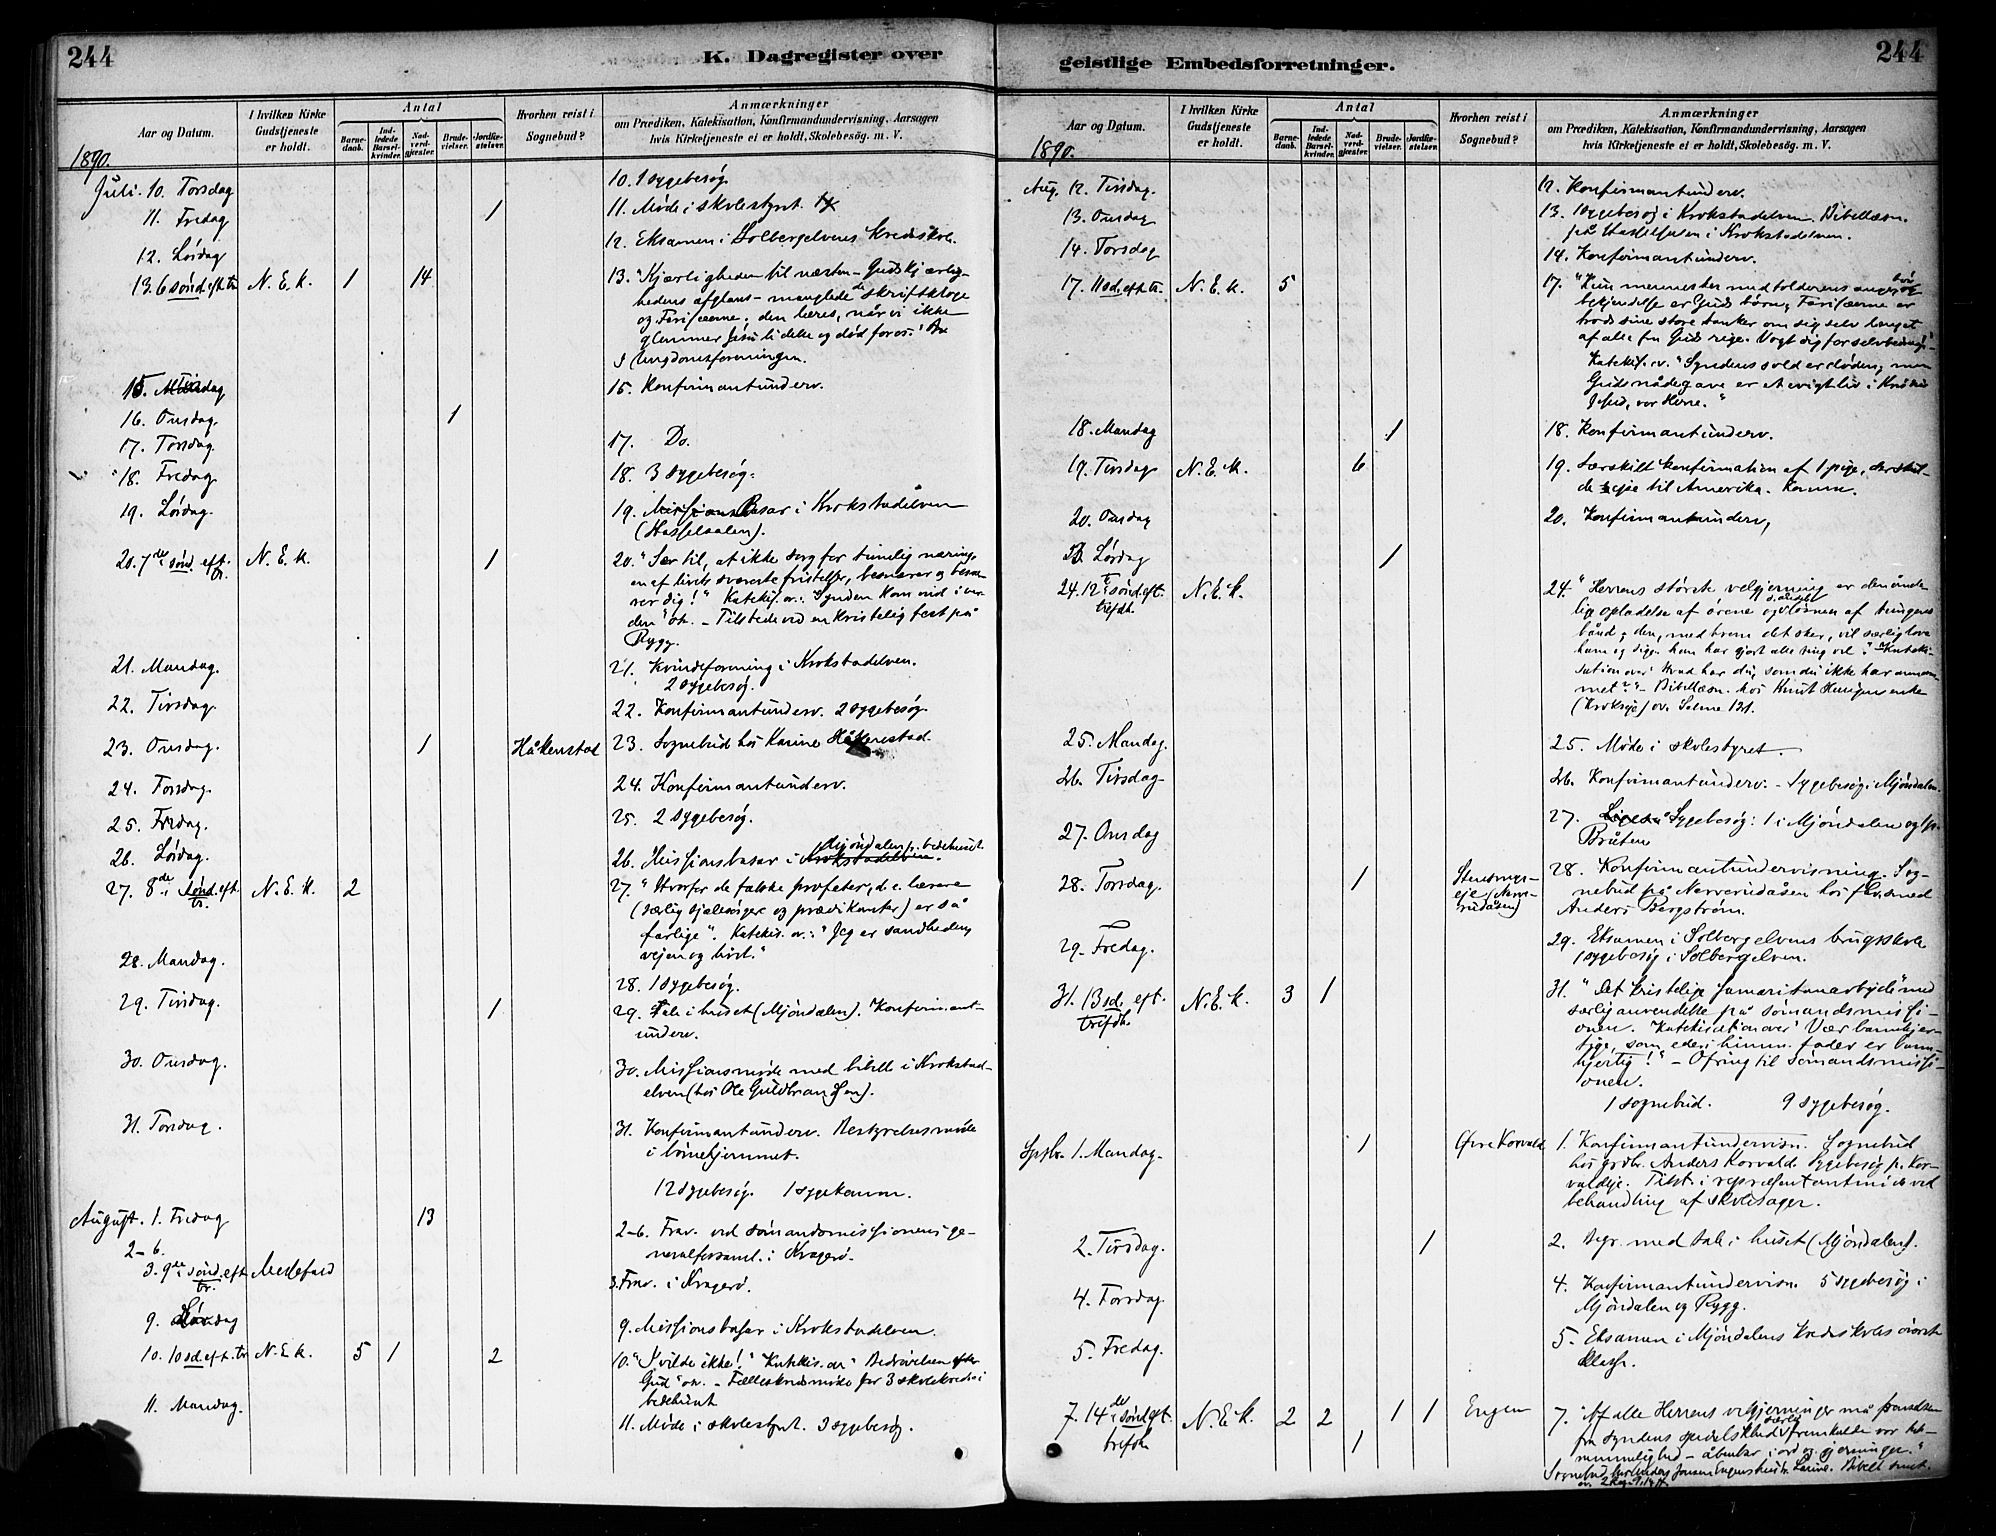 244
K. Dagregister over
Aar og Datum.
I hvilken Kirke Gudstjeneste er holdt.
Antal
Barnedaab.
Indledede Barselkvinder.
Nadverdgjæster.
Brudevielser.
Jordfæstelser.
Hvorhen reist i Sognebud?
Anmærkninger
om Prædiken, Katekisation, Konfirmandundervisning, Aarsagen
hvis Kirketjeneste ei er holdt, Skolebesög. m. V.
1890.
Juli. 10. Torsdag 10. 1 sygebesøg.
11. Fredag 1 11. Møde i skolestyret.
12. Lørdag 12. Eksamen i Solbergelvens kredsskole.
13. 6 sønd. eft. tr. N. E. K. 1 14 13. "Kjærligheden til næsten – Guds kjærlig-
hedens afglans – manglede de skriftkloge
og Farisæerne; den læres, når vi ikke
glemmer Jesu lidelse og død for os."
I Ungdomsforeningen.
15. Tirsdag 15. Konfirmantunderv.
16. Onsdag. 1
17. Torsdag. 17. Do.
18. Fredag 18. 3 sygebesøg.
19. Lørdag. 19. Missionsbasar i Krokstadelven
(Hasselsalen).
20. 7de sønd. eft. tr. N. E. K. 1 20. "Se til, at ikke sorg for timelig næring,
en af livets sværeste fristelser, besnærer og
dig!" Katekis. ov.: "Synden kom ind i ver-
den" ov. – Tilstede ved en kristelig fest på
Rygg.
21. Mandag. 21. Kvindeforening i Krokstadelven.
2 sygebesøg.
22. Tirsdag. 22. Konfirmantunderv. 2 sygebesøg.
23. Onsdag. 1 Håkenstad 23. Sognebud hos Karine Håkenstad.
24. Torsdag. 24. Konfirmantunderv.
25. Fredag. 25. 2 sygebesøg.
26. Lørdag. 26. Missionsbasar i Krokstadelven. Mjøndalen p. bedehuset
27. 8de sønd. eft. tr. N. E. K. 2 27. "Hvorfor de falske profeter, d. e. lærere
(særlig sjælesørger og prædikanter) er så
farlige". Katekis. ov.: "Jeg er sandheden,
veien og livet."
28. Mandag. 28. 1 sygebesøg.
29. Tirsdag. 1 29. Tale i huset (Mjøndalen). Konfirmant-
underv.
30. Onsdag. 30. Missionsmøde med bibell. i Krokstad-
elven (hos Ole Guldbrandsen).
31. Torsdag. 31. Konfirmantunderv. Bestyrelsesmøde
i børnehjemmet.
12 sygebesøg. 1 sygekomm.
August. 1. Fredag 13
2–6. 2–6. Frav. ved sømandsmissionens ge-
neralforsaml. i Kragerø.
3. 9de sønd. eft. tr. Messefald 3. Frav. i Kragerø.
9. Lørdag 9. Missionsbasar i Krokstadelven.
10. 10 sd. eft. tr. N. E. K. 5 1 2 10. "I vilde ikke!" Katekis. ov. "Bedrøvelsen efter
Gud" ov. – Fælleskredsmøde for 3 skolekredse i
bedehuset
11. Mandag. 11. Møde i skolestyret. 3 sygebesøg.
244
geistlige Embedsforretninger.
Aar og Datum.
I hvilken Kirke Gudstjeneste er holdt.
Antal
Barnedaab.
Indledede Barselkvinder.
Nadverdgjæster.
Brudevielser.
Jordfæstelser.
Hvorhen reist i Sognebud?
Anmærkninger
om Prædiken, Katekisation, Konfirmandundervisning, Aarsagen
hvis Kirketjeneste ei er holdt, Skolebesög. m. V.
1890.
Aug. 12. Tirsdag. 12. Konfirmantunderv.
13. Onsdag 13. 1 sygebesøg i Krokstadelven. Bibellæsn.
på Hasselsalen i Krokstadelven.
14. Torsdag 14. Konfirmantunderv.
17. 11 sd. eft. tr. N. E. K. 5 17. "Kun mennesker med tolderens anger og
bekjendelse er Guds børn; Farisæerne er
trods sine store tanker om sig selv længst
af alle fra Guds rige. Vogt dig for selvbedrag!"
Katekis. ov. "Syndens sold er døden; men
Guds nådegave er et evigt liv i Kristus
Jesus, vor Herre."
18. Mandag 1 18. Konfirmantunderv.
19. Tirsdag N. E. K. 6 19. Særskilt konfirmation af 1 pige, der skul-
de reise til Amerika. Komm.
20. Onsdag 20. Konfirmantunderv.
23. Lørdag 1
24. 12te sønd. eft. trefdh. N. E. K. 24. "Herrens største velgjerning er den ånde-
lige opladelse af ørene og løsnen af tungens
bånd; den, med hvem det sker, vil særlig love
ham og sige: han har gjort alle ting vel." – Kateki-
sation over "Hvad har du, som du ikke har annam-
met?" – Bibellæsn. hos Knut enke
(Krokseje) ov. Salme 121.
25. Mandag. 25. Møde i skolestyret.
26. Tirsdag 26. Konfirmantunderv. – Sygebesøg i Mjøndalen.
27. Onsdag 27. Sygebesøg: 1 i Mjøndalen og 1 p.
Bråten
28. Torsdag. 1 28. Konfirmantundervisning. Sog-
nebud på Narverudåsen hos
Anders Bergstrøm.
29. Fredag. 29. Eksamen i Solbergelvens brugsskole
1 sygebesøg i Solbergelven.
31. 13 sd. eft. trefdh. N. E. K. 3 1 31. "Det kristelige samaritanarbejde" med
særlig anvendelse på sømandsmissi-
onen. Katekisation over "Vær barmhjer-
tige, som eders himm. fader er barm-
hjertig!" – Ofring til sømandsmissi-
onen.
1 sognebud. 9 sygebesøg.
Septbr. 1. Mandag. 1 Øvre Korvald 1. Konfirmantundervisn. Sognebud
hos grdbr. Anders Korvald. Sygebesøg p. Kor-
valdeje. Tilst. i repræsentantmøde ved
behandling af skolesager.
2. Tirsdag. 1 2. Begr. med tale i huset (Mjøndalen).
4. Torsdag. 4. Konfirmantundervisn. 5 sygebesøg i
Mjøndalen og Rygg.
5. Fredag. 5. Eksamen i Mjøndalens kredsskoles øverste
klasse.
7. 14de sønd. eft. trefdh. N. E. K. 2 2 1 1 1 Engen 7. "Af alle Herrens velgjerninger må frelsen
fra syndens spedalskhed særlig fremkalde vor tak-
nemmelighed – åbenbar i ord og gjerninger."
Sognebud hos